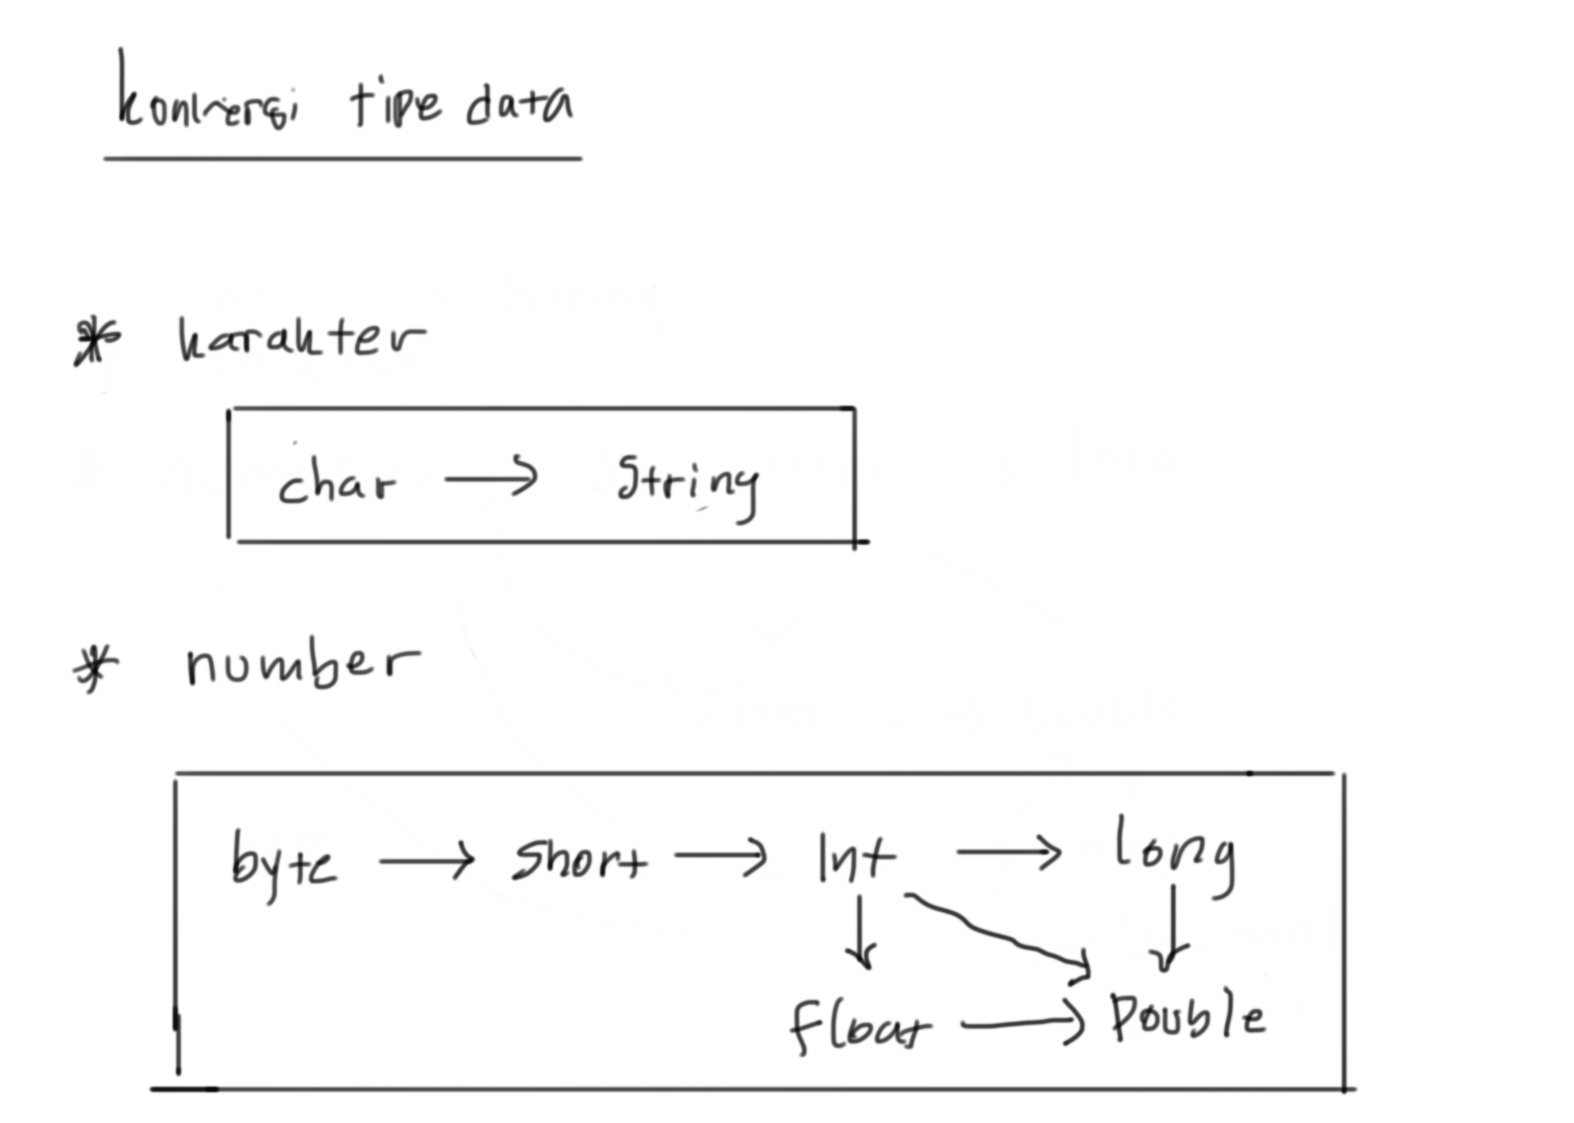 konversi tipe data
* karakter
char → String
* number
byte → short → Int → long
float → Double